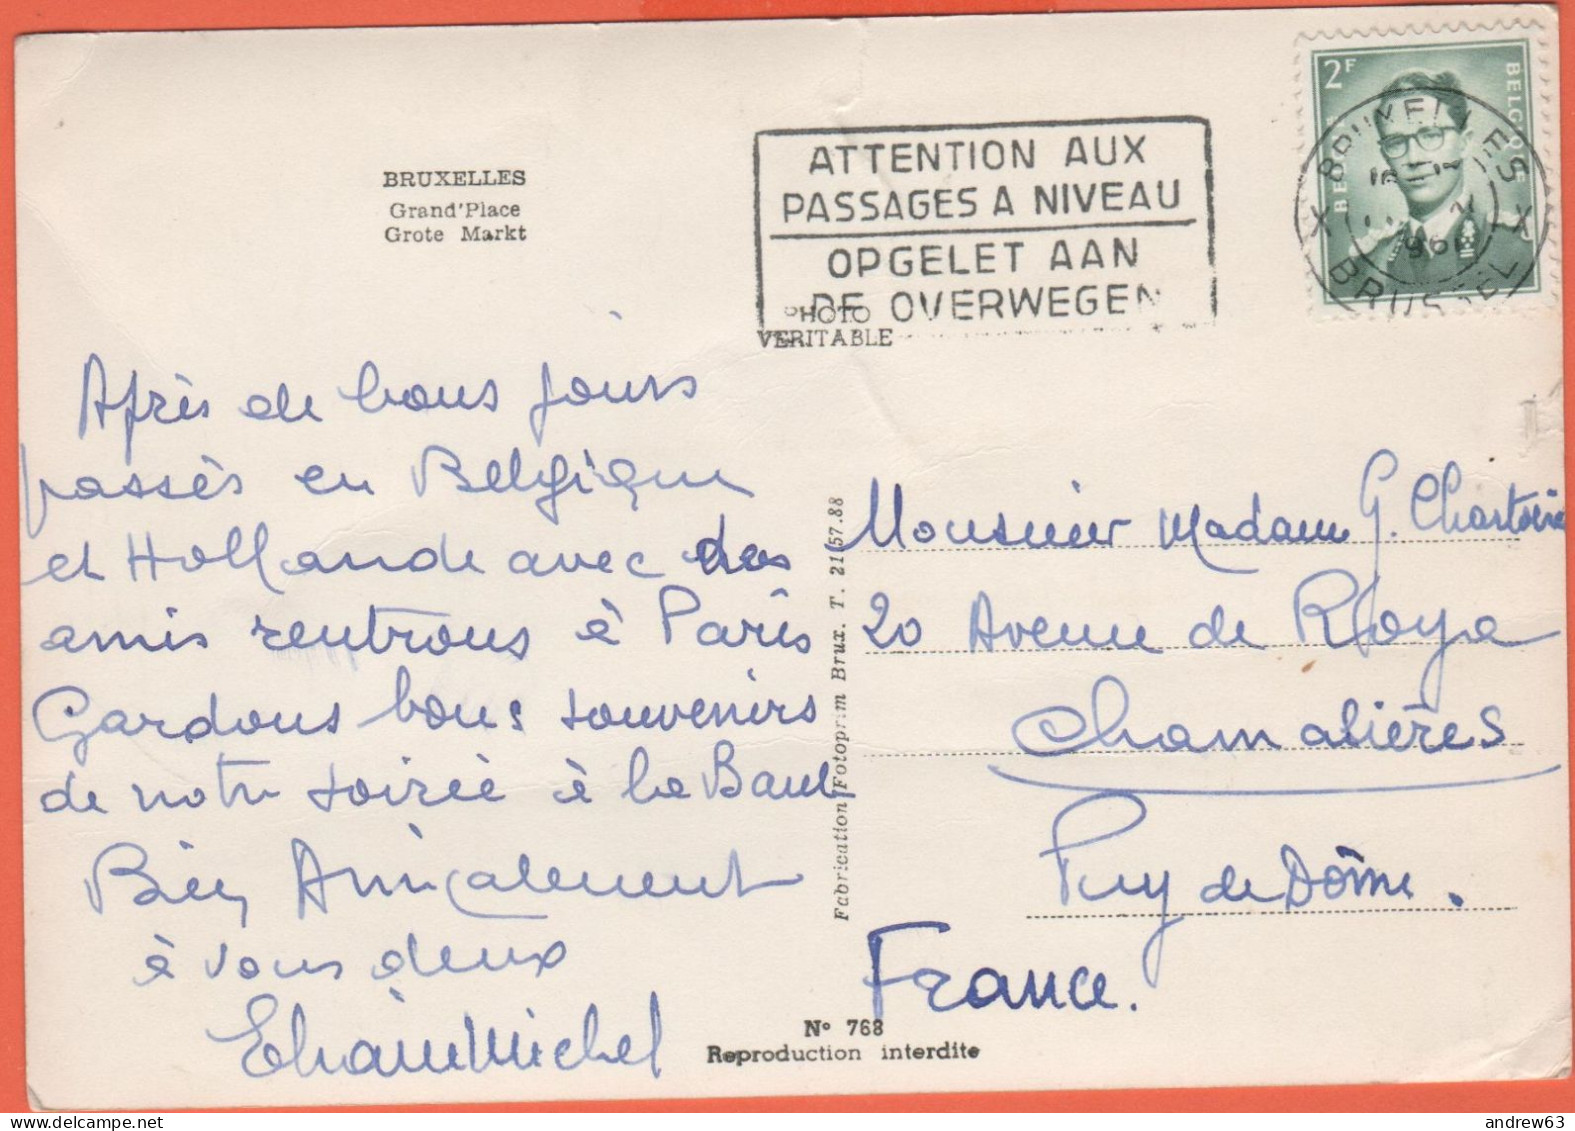 BRUXELLES
Grand'Place
Grote Markt
ATTENTION AUX
PASSAGES A NIVEAU
OPGELET AAN
DE OVERWEGEN
PHOTO
VERITABLE
2F
BELGIQUE
BELGIE
BRUXELLES
BRUSSEL
Après de bons jours
passés en Belgique
et Hollande avec des
amis rentrons à Paris
Gardons bons souvenirs
de notre soirée à la Baule
Bien Amicalement
à vous deux
Michel
Fabrication Fotoprim Brux. T. 21.57.88
Monsieur Madame G.
20 Avenue de Royat
Chamalières
Puy de Dôme.
France.
N° 768
Reproduction interdite
andrew63